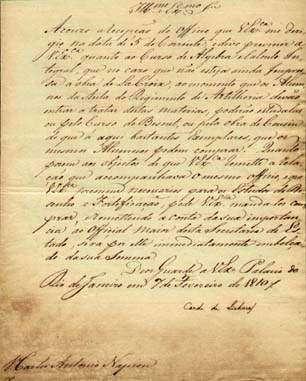 Illmo e Exmo Sr
Accuso a recepção do Officio que V Exca me diri
gio na data de 5 do Corrente, e devo prevenir a
V Exca, quanto ao Curso de Algebra e Calculo Inte
gral, que no caso que não esteja ainda impressa
a obra de La Croix, os
mnos da Aula do Regimento de Artilheria
entrar a tratar destas materias, poderão estudallas
ou pelo Curso de Bezout, ou pela obra de Cousin
de que á aqui bastantes Exemplares, que os mes
mos Alumnos podem comprar. Quanto
porem aos de que V Exca remette a Rela
ção que acompanhava o mesmo Officio, e que
V Exca necessarios para o Estudo do De
senho e Fortificação, pode V Exca mandallos com
prar, remettendo a conta da sua impor
tancia ao Official Maior desta Secretaria de Es
tado sera por elle immediatamente embolça
do da sua Somma.
Deos Guarde a V Exca Palacio do
Rio de Janeiro em 7 de Fevereiro de 1810
Conde de Linhares
Antonio Napion